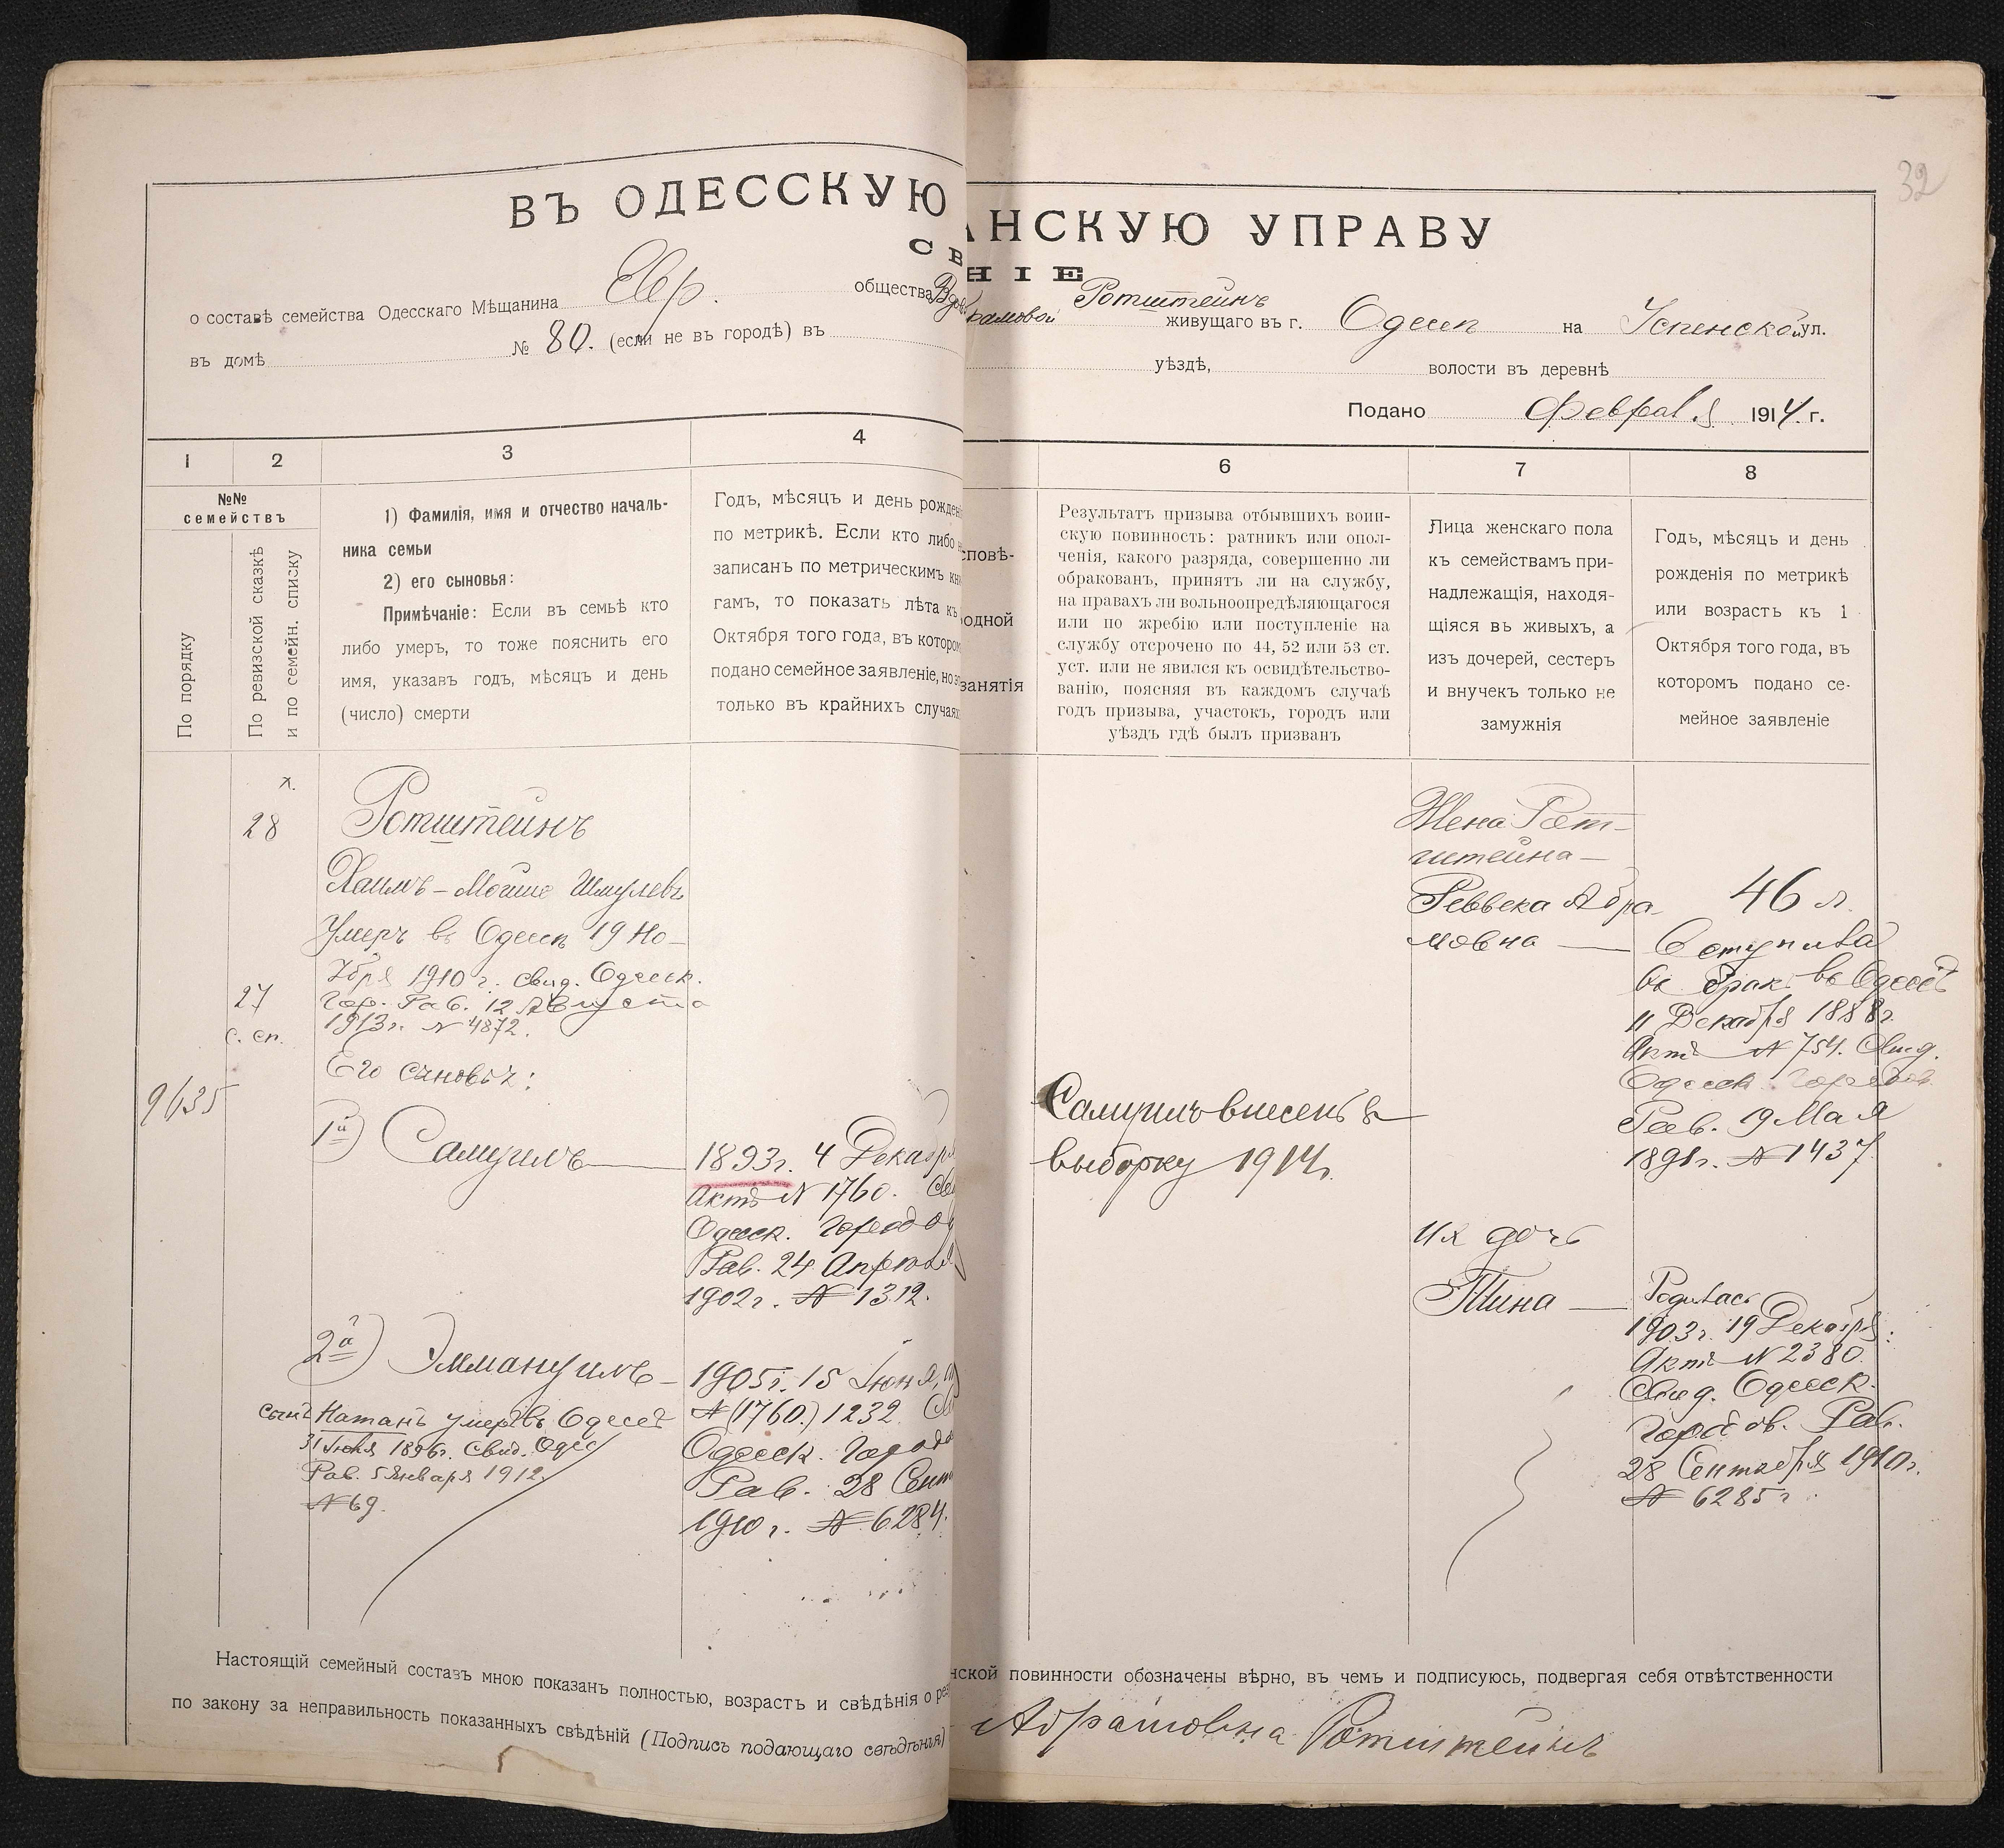 32
ВЪ ОДЕССКУЮ
АНСКУЮ УПРАВУ
СВ
НІЕ
о составѣ семейства Одесскаго Мѣщанина Евр. общества
Ротштейнъ
живущаго въ г. Одессѣ на Успенской ул.
въ домѣ № 80. (если не въ городѣ) въ
уѣздѣ, волости въ деревнѣ
Подано Февраля 1914 г.
1 2 3 4
6 7 8
№№ семействъ
По порядку
По ревизской сказкѣ
и по семейн. списку
1) Фамилія, имя и отчество началь-
ника семьи
2) его сыновья:
Примѣчаніе: Если въ семьѣ кто
либо умеръ, то тоже пояснить его
имя, указавъ годъ, мѣсяцъ и день
(число) смерти
Годъ, мѣсяцъ и день рожден
по метрикѣ. Если кто либо
записанъ по метрическимъ кн
гамъ, то показать лѣта къ
Октября того года, въ котором
подано семейное заявленіе, но
только въ крайнихъ случаях
сповѣ-
одной
занятія
Результатъ призыва отбывшихъ воин-
скую повинность: ратникъ или опол-
ченія, какого разряда, совершенно ли
обракованъ, принятъ ли на службу,
на правахъ ли вольноопредѣляющагося
или по жребію или поступленіе на
службу отсрочено по 44, 52 или 53 ст.
уст. или не явился къ освидѣтельство-
ванію, поясняя въ каждомъ случаѣ
годъ призыва, участокъ, городъ или
уѣздъ гдѣ былъ призванъ
Лица женскаго пола
къ семействамъ при-
надлежащія, находя-
щіяся въ живыхъ, а
изъ дочерей, сестеръ
и внучекъ только не
замужнія
Годъ, мѣсяцъ и день
рожденія по метрикѣ
или возрасть къ 1
Октября того года, въ
которомъ подано се-
мейное заявленіе
28
27
с. сп.
9635
Ротштейнъ
Хаимъ-Мойше Шмулевъ
Умеръ въ Одессѣ 19 Но-
ября 1910 г. свид. Одесск.
Гор. Рав. 12 Августа
1913 г. № 4872.
Его сыновья:
1й) Самуилъ
2й) Эммануилъ
сынъ Натанъ умеръ въ Одессѣ
31 1896 г. Свид. Одес
Рав. 5 Января 1912
№ 69.
1893 г. 4 Декабр
Актъ № 1760.
Одесск. Городо
Рав. 24 Апреля
1902 г. № 1312.
1905 г. 15 Іюня,
№ (1760.) 1232
Одесск. Городо
Рав. 28 Сент
1910 г. № 6284.
Самуилъ внесенъ в
выборку 1914 г.
Жена Рот-
штейна-
Реввека Абра-
мовна
Их дочь
Тина
46 л.
Вступила
въ бракъ въ Одессѣ
11 Декабря 1888 г.
Актъ № 754. Свид.
Одесск. Городов.
Рав. 9 Мая
1891 г. № 1437
Родилась
1903 г. 19 Декабря
Актъ № 2380.
Свид. Одесск.
Городов. Рав.
28 Сентября 1910 г.
№ 6285
Настоящій семейный составъ мною показанъ полностью, возрасть и свѣдѣнія о
нской повинности обозначены вѣрно, въ чемъ и подписуюсь, подвергая себя отвѣтственности
по закону за неправильность показанныхъ свѣдѣній (Подпись подающаго свѣдѣнія)
Абрамовна Ротштейнъ